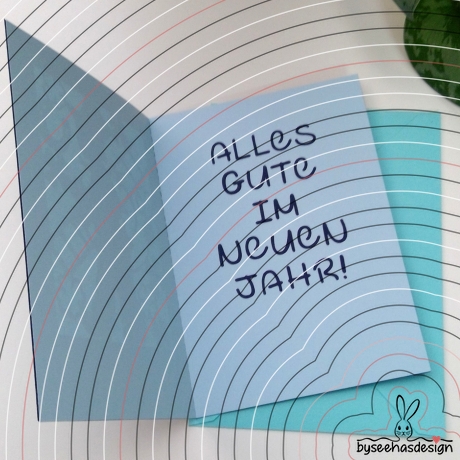 ALLES
GUTE
IM
NEUEN
JAHR!
byseehasdesign